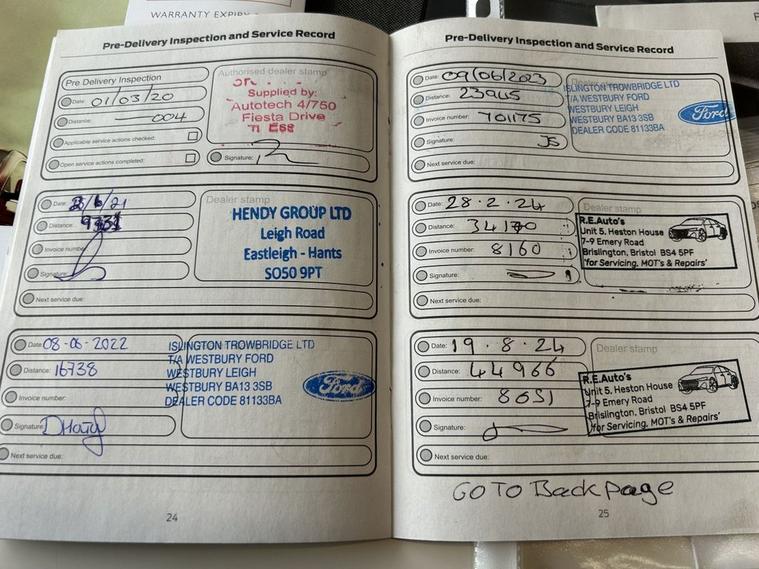 WARRANTY EXPIRY
Pre-Delivery Inspection and Service Record
Pre Delivery Inspection
Date: 01/03/20
Distance: 004
Applicable service actions checked:
Open service actions completed:
Authorised dealer stamp
Supplied by:
Autotech 4/750
Fiesta Drive
Signature:
Date: /6/21
Distance:
Invoice number:
Signature:
Next service due:
Dealer stamp
HENDY GROUP LTD
Leigh Road
Eastleigh - Hants
SO50 9PT
Date: 08-06-2022
Distance: 16738
Invoice number:
Signature:
Next service due:
ISLINGTON TROWBRIDGE LTD
T/A WESTBURY FORD
WESTBURY LEIGH
WESTBURY BA13 3SB
DEALER CODE 81133BA
Ford
24
Pre-Delivery Inspection and Service Record
Date: 09/06/2023
Distance: 23945
Invoice number: 701175
Signature: JS
Next service due:
ISLINGTON TROWBRIDGE LTD
T/A WESTBURY FORD
WESTBURY LEIGH
WESTBURY BA13 3SB
DEALER CODE 81133BA
Ford
Date: 28.2.24
Distance:
Invoice number: 8160
Signature:
Next service due:
R.E.Auto's
Unit 5, Heston House
7-9 Emery Road
Brislington, Bristol BS4 5PF
'for Servicing, MOT's & Repairs'
Date: 19.8.24
Distance: 44966
Invoice number: 8051
Signature:
Next service due:
Dealer stamp
R.E.Auto's
Unit 5, Heston House
7-9 Emery Road
Brislington, Bristol BS4 5PF
'for Servicing, MOT's & Repairs'
GO TO Back page
25